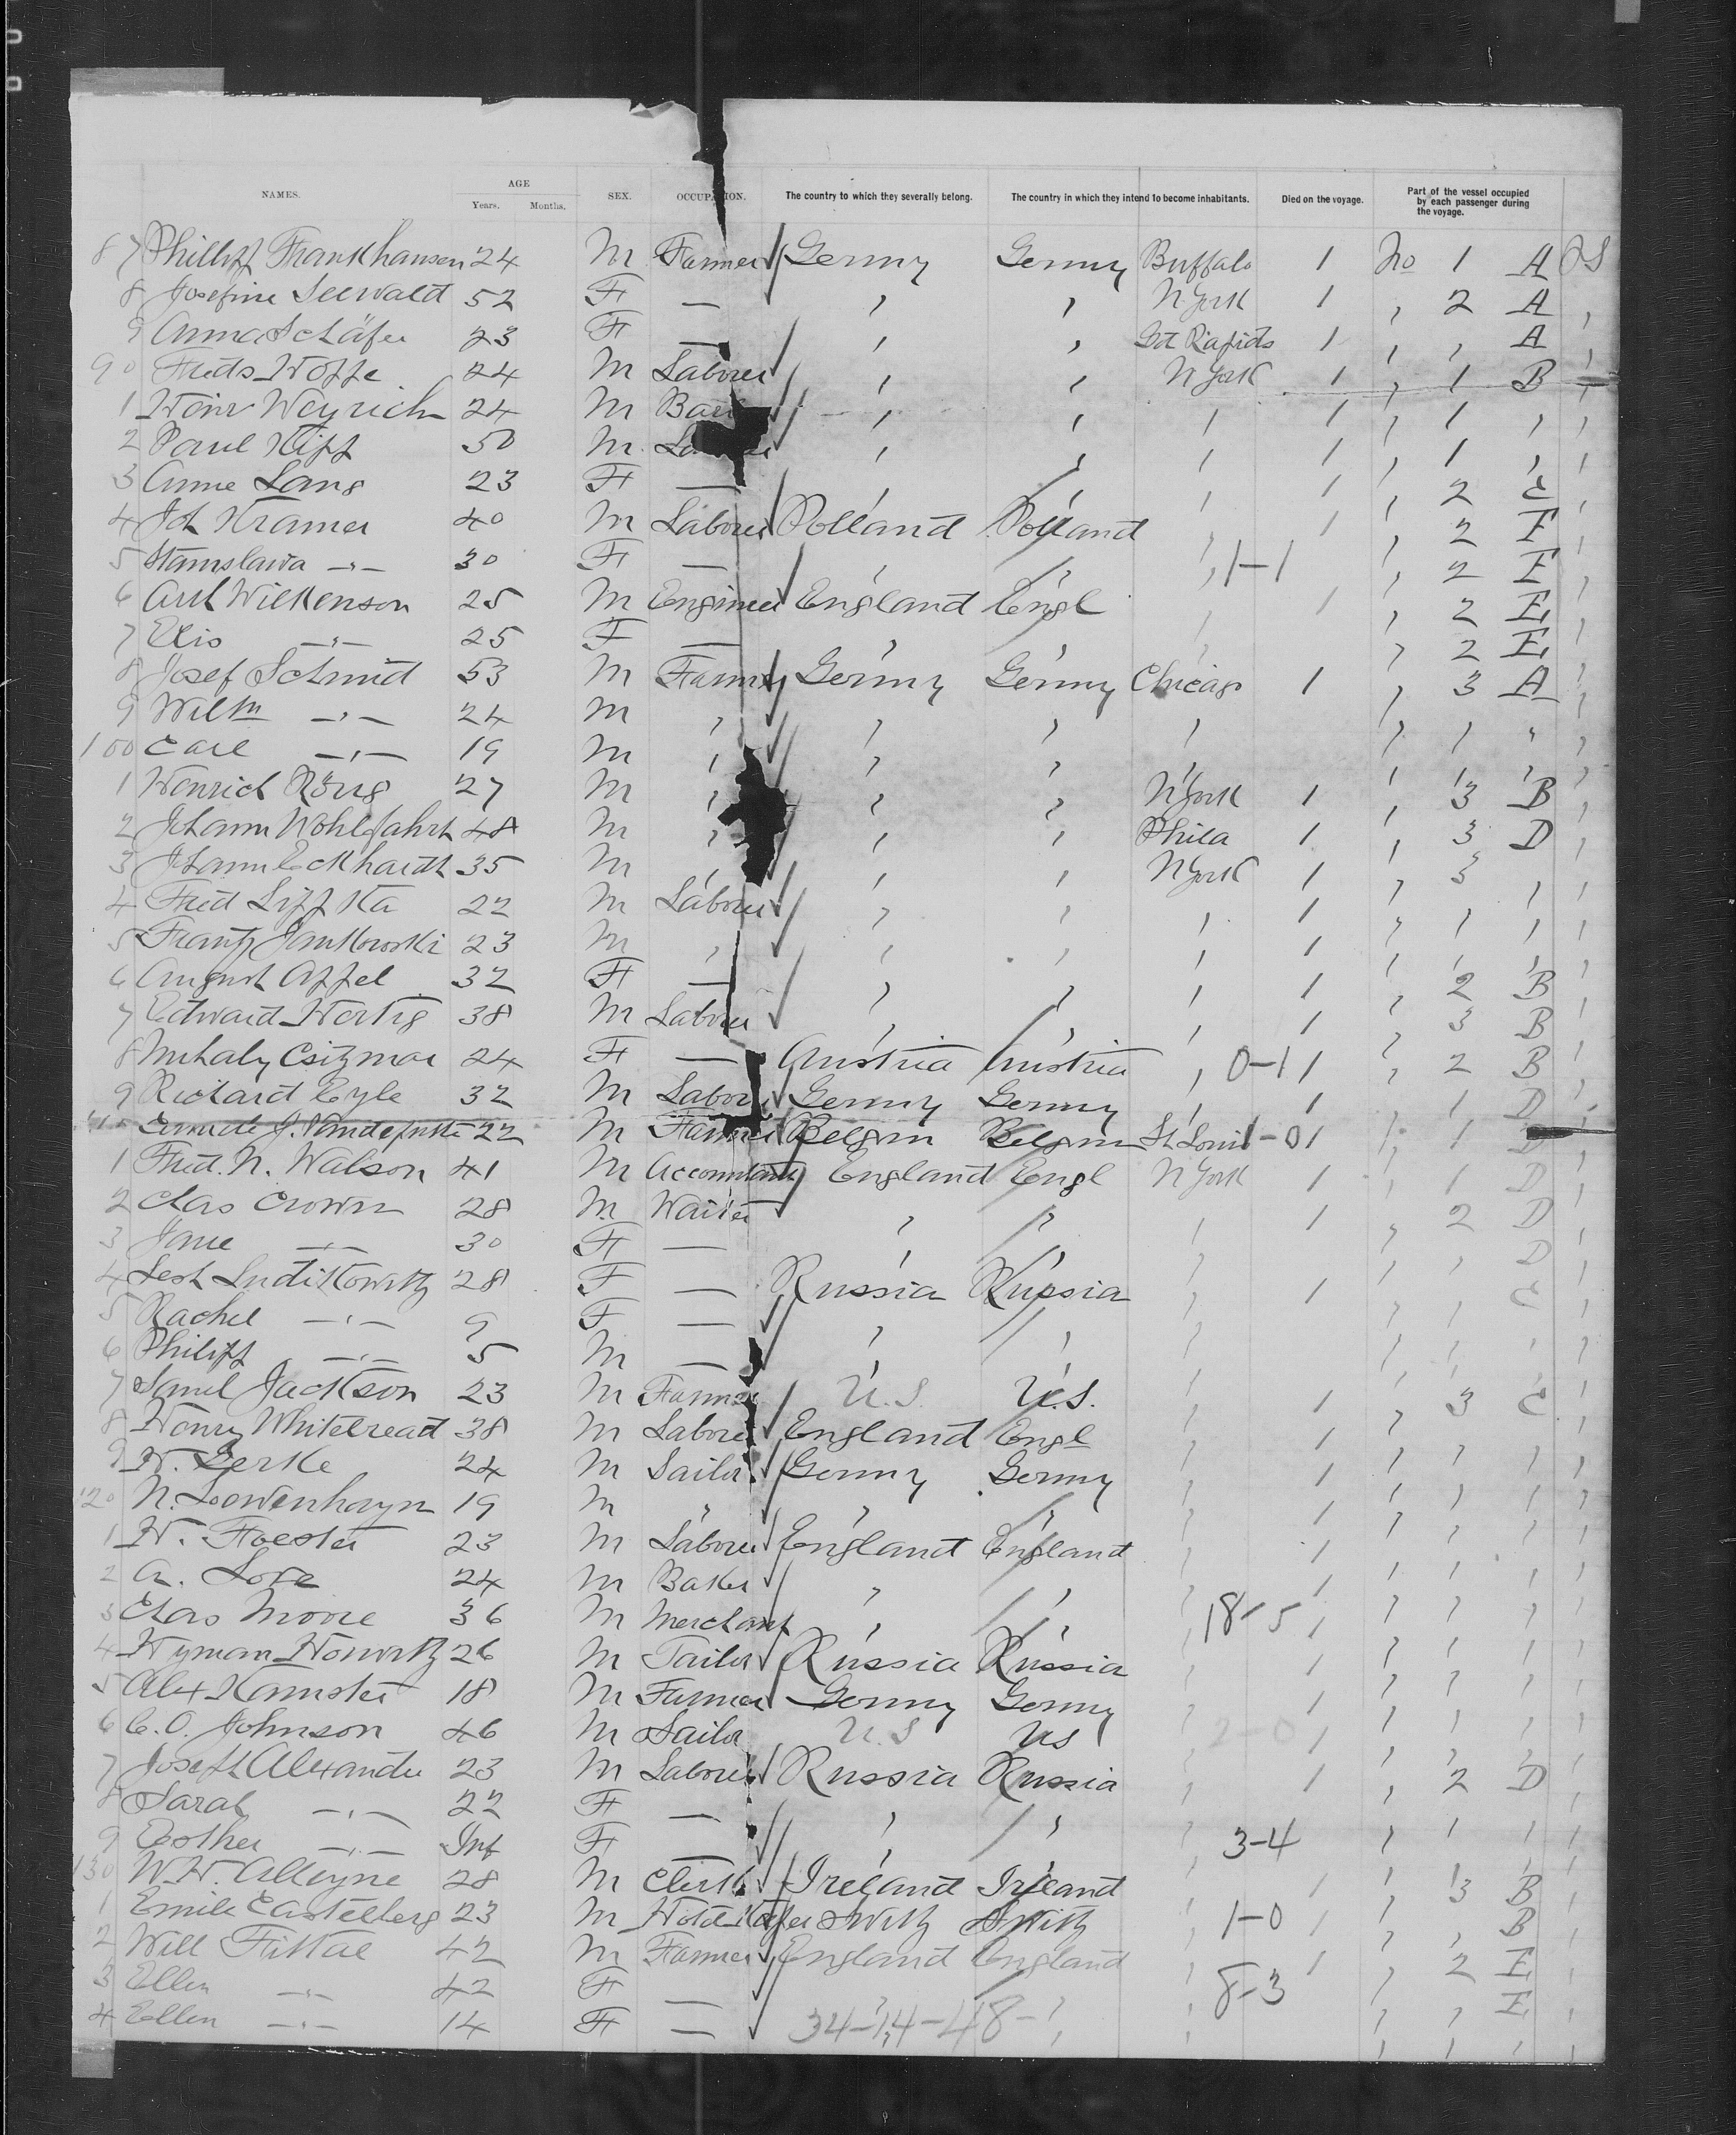 NAMES. AGE Years. Months. SEX. OCCUPATION. The country to which they severally belong. The country in which they intend to become inhabitants. Died on the voyage. Part of the vessel occupied by each passenger during the voyage.
87 Phillipp Frankhausen 24 M Farmer Germy Germy Buffalo 1 No 1 A
8 Josefine Seewald 52 F — " " N York 1 " 2 A "
9 Anna Schäfer 23 F — " " Gd Rapids 1 " " A "
90 Frieds Hoppe 24 M Laborer " " N York 1 " 1 B "
1 Heinr Weyrich 24 M " " " 1 " 1 " "
2 Paul Kipp 50 M " " " 1 " 1 " "
3 Anne Lang 23 F — " " " 1 " 2 C "
4 Joh Kramer 40 M Laborer Polland Polland " 1 " 2 E "
5 Stanislawa —"— 30 F — " " " 1-1 " 2 E "
6 Art Wilkenson 25 M Engineer England Engl " 1 " 2 E "
7 Elis —"— 25 F — " " " " 2 E "
8 Josef Schmid 53 M Farmer Germy Germy Chicago 1 " 3 A "
9 Wilhm —"— 24 M " " " " " 1 " "
100 Carl —"— 19 M " " " " " " " "
1 Henrich König 27 M " " " N York 1 " 3 B "
2 Johann Wohlfahrt 48 M " " " Phila 1 " 3 D "
3 Johann Eckhardt 35 M " " " N York 1 " 3 " "
4 Fried Lippka 22 M Laborer " " " 1 " 1 " "
5 Frantz Jankowski 23 M " " " " 1 " " " "
6 August Appel 32 F — " " " 1 " 2 B "
7 Edward Hertig 38 M Laborer " " " 1 " 3 B "
8 Mihaly Csizmar 24 F — Austria Austria " 0-1 1 " 2 B "
9 Richard Eyle 32 M Laborer Germy Germy " 1 " 1 D "
22 M Farmer Belgim Belgim St Louis 1-0 1 " 1 D
1 Fred. N. Watson 41 M Accountant England Engl N York 1 " 1 D "
2 Chas Crown 28 M Waiter " " " 1 " 2 D "
3 Jane —"— 30 F — " " " " " D "
4 28 F — Russia Russia " 1 " " C "
5 Rachel —"— 9 F — " " " " " " "
6 Philipp —"— 5 M — " " " " " " "
7 Saml Jackson 23 M Farmer U.S. U.S. " 1 " 3 C "
8 Henry Whitebread 38 M Laborer England Engl " 1 " " " "
9 H. Gerke 24 M Sailor Germy Germy " 1 " " " "
120 N. Loewenhayn 19 M " " " " 1 " " " "
1 H. Foester 23 M Laborer England England " 1 " " " "
2 A. Love 24 M Baker " " " 1 " " " "
3 Chas Moore 36 M Merchant " " " 18-5 1 " " " "
4 Hyman Horwitz 26 M Tailor Russia Russia " 1 " " " "
5 Alex Kamster 18 M Farmer Germy Germy " 1 " " " "
6 C. O. Johnson 46 M Sailor U.S US " 2-0 1 " " " "
7 Joseph Alexander 23 M Laborer Russia Russia " 1 " 2 D "
8 Sarah —"— 22 F — " " " " " " "
9 Esther —"— Inf F — " " " 3-4 " " " "
130 W. H. Alleyne 28 M Clerk Ireland Ireland " 1 " 3 B "
1 Emile Castelberg 23 M Hotelkeper Switz Switz " 1-0 1 " " B "
2 Will 42 M Farmer England England " 1 " 2 E "
3 Ellen —"— 42 F — " " " 8-3 " " E "
4 Ellen —"— 14 F — 34-14-48- " " " " " "